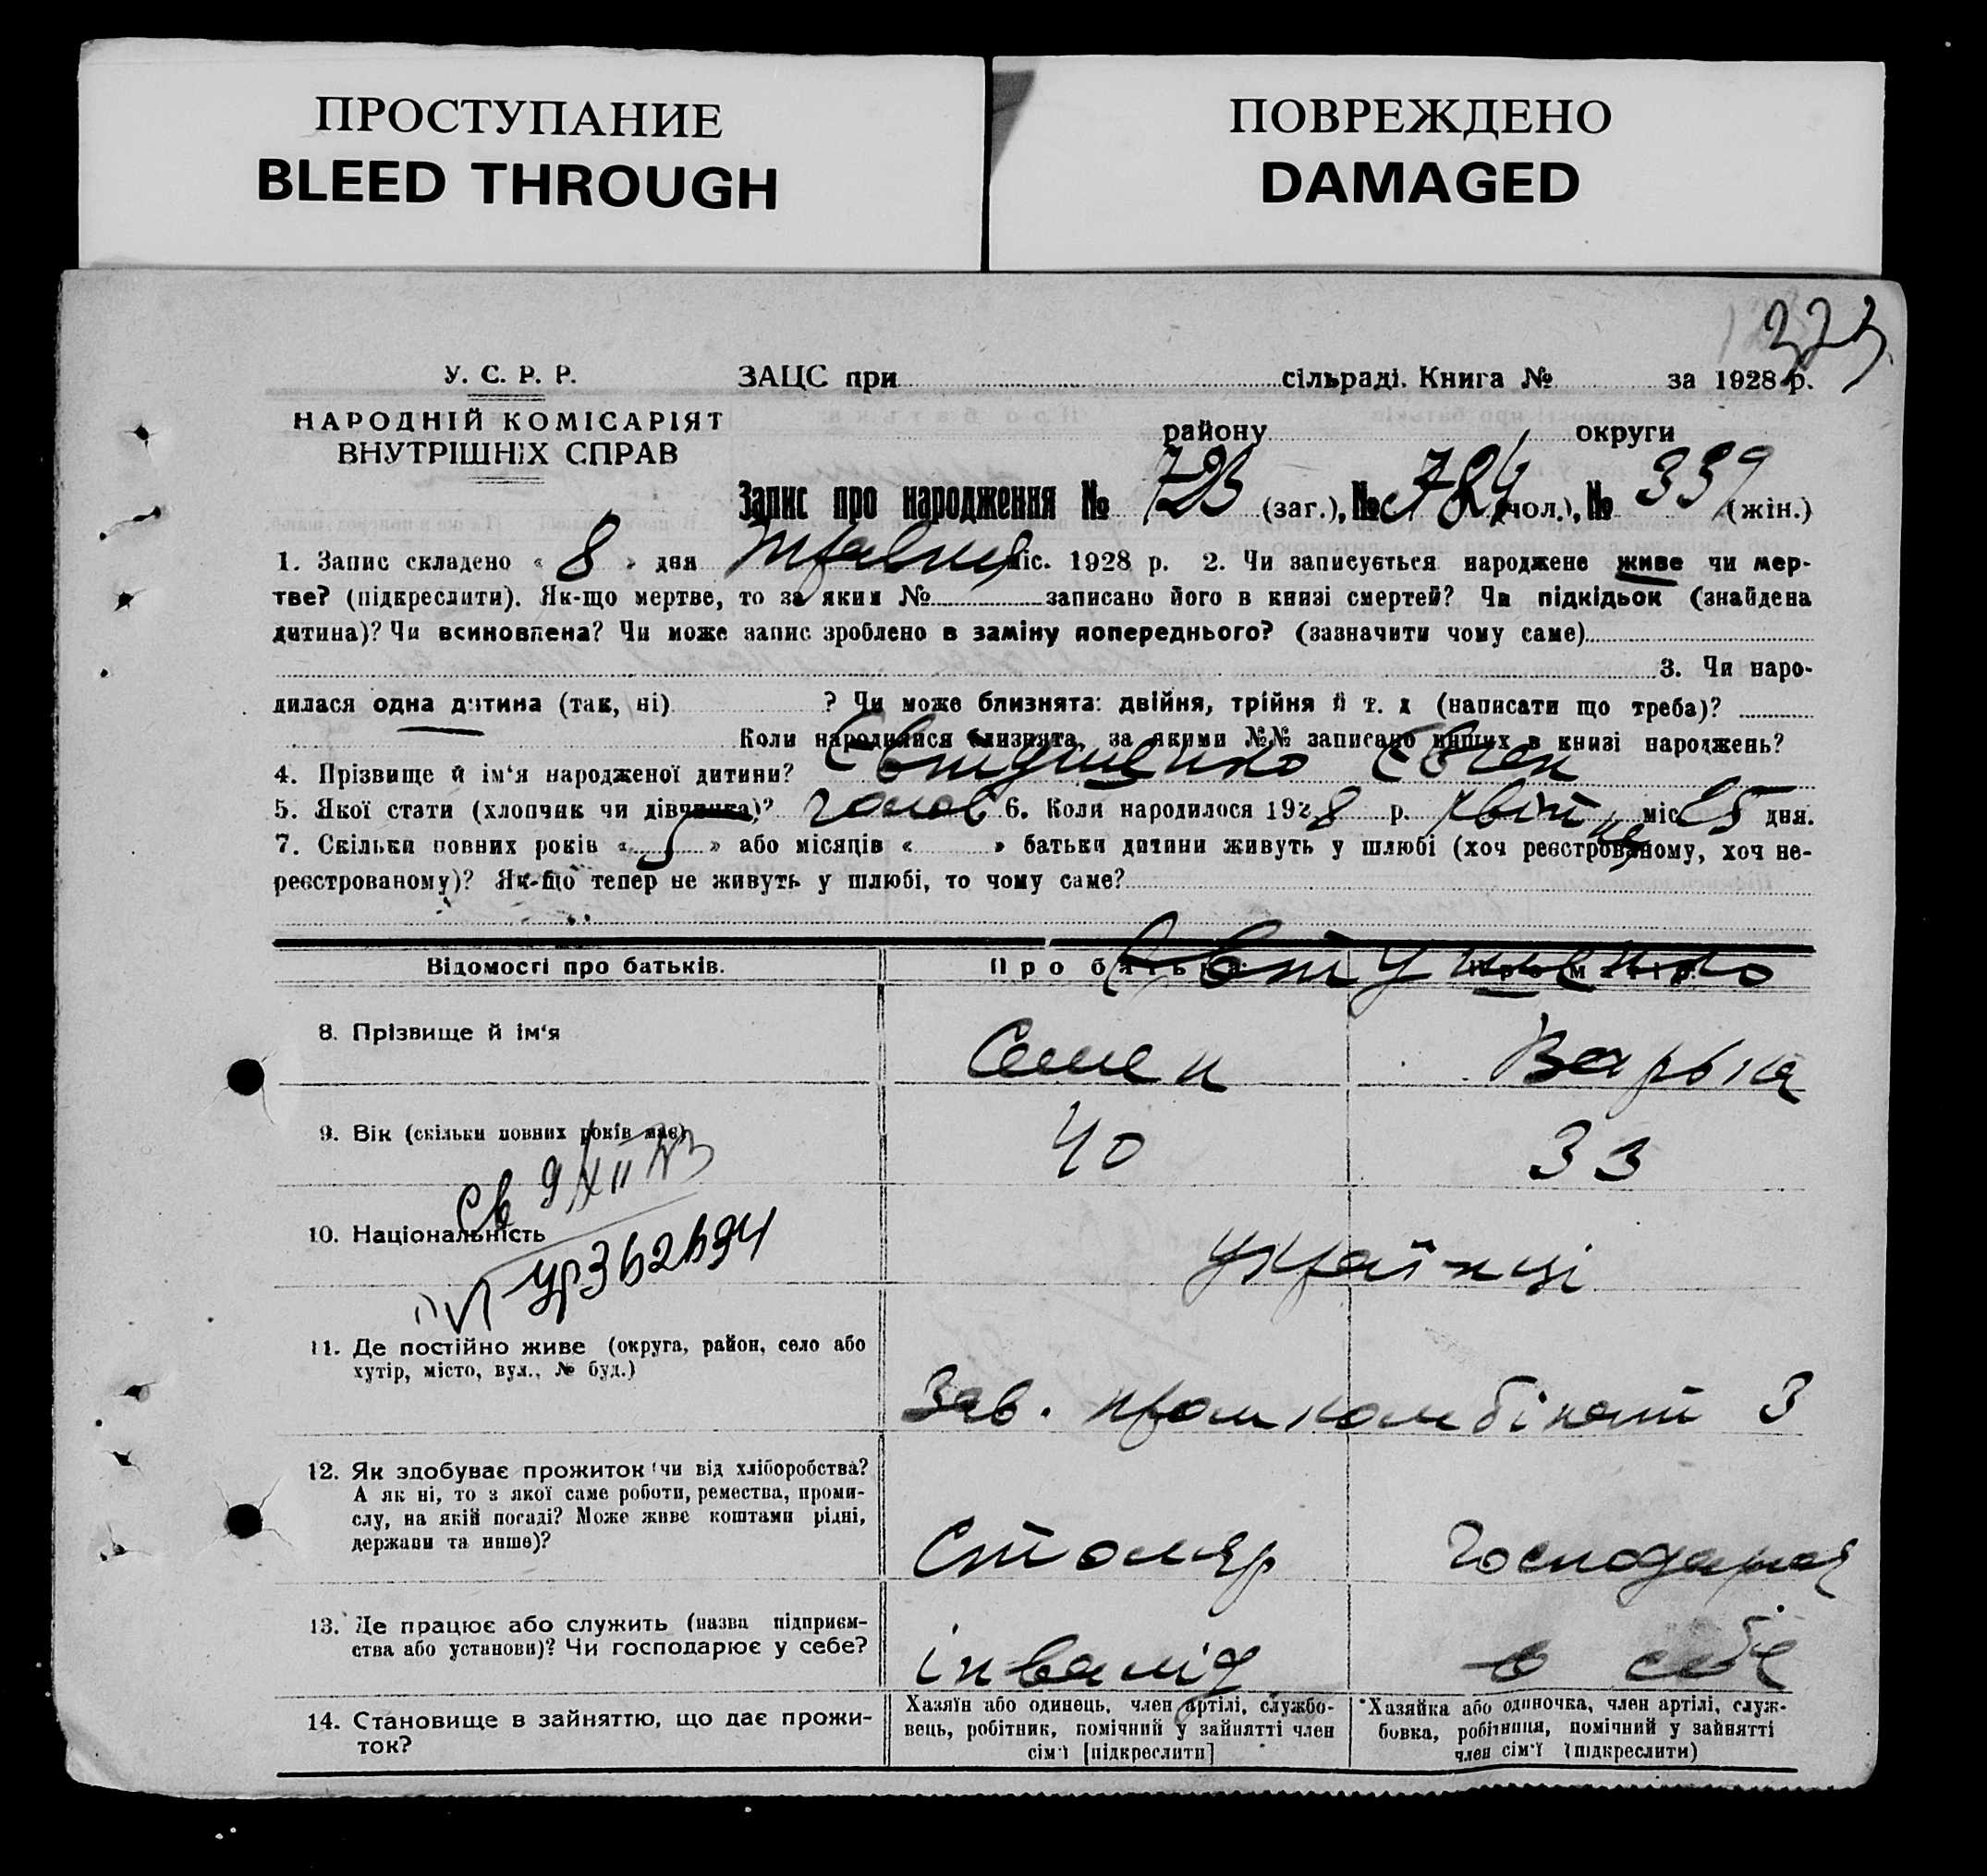 ПРОСТУПАНИЕ
BLEED THROUGH
ПОВРЕЖДЕНО
DAMAGED
У. С. Р. Р.
НАРОДНІЙ КОМІСАРІЯТ
ВНУТРІШНІХ СПРАВ
ЗАЦС при сільраді. Книга № за 1928 р.
району округи
Запис про народження № 723 (заг.), № 784 (чол.), № 339 (жін.)
1. Запис складено « 8 » дня травня міс. 1928 р. 2. Чи записується народжене живе чи мер-
тве? (підкреслити). Як-що мертве, то за яким № записано його в книзі смертей? Чи підкідьок (знайдена
дитина)? Чи всиновлена? Чи може запис зроблено в заміну попереднього? (зазначити чому саме)
3. Чи наро-
дилася одна дитина (так, ні) ? Чи може близнята: двійня, трійня й т. д (написати що треба)?
Коли народилися близнята, за якими №№ записано инших в книзі народжень?
4. Прізвище й ім'я народженої дитини? Євтушенко Євген
5. Якої стати (хлопчик чи дівчинка)? чолов 6. Коли народилося 1928 р. квітня міс 25 дня.
7. Скільки повних років « 5 » або місяців « » батьки дитини живуть у шлюбі (хоч реєстрованому, хоч не-
реєстрованому)? Як-що тепер не живуть у шлюбі, то чому саме?
Відомості про батьків. Про батька Про матір
Євтушенко
8. Прізвище й ім'я Семен Варька
9. Вік (скільки повних років має) 40 33
10. Національність українці
11. Де постійно живе (округа, район, село або
хутір, місто, вул., № буд.)
Зав. промкомбінат 3
12. Як здобуває прожиток чи від хліборобства?
А як ні, то з якої саме роботи, ремества, проми-
слу, на якій посаді? Може живе коштами рідні,
держави та инше)?
Столяр Господарка
13. Де працює або служить (назва підприєм-
ства або установи)? Чи господарює у себе?
інвалід в себе
14. Становище в зайняттю, що дає прожи-
ток?
Хазяїн або одинець, член артілі, службо-
вець, робітник, помічний у зайнятті член
сім'ї [підкреслити]
Хазяйка або одиночка, член артілі, служ-
бовка, робітниця, помічний у зайнятті
член сім'ї (підкреслити)